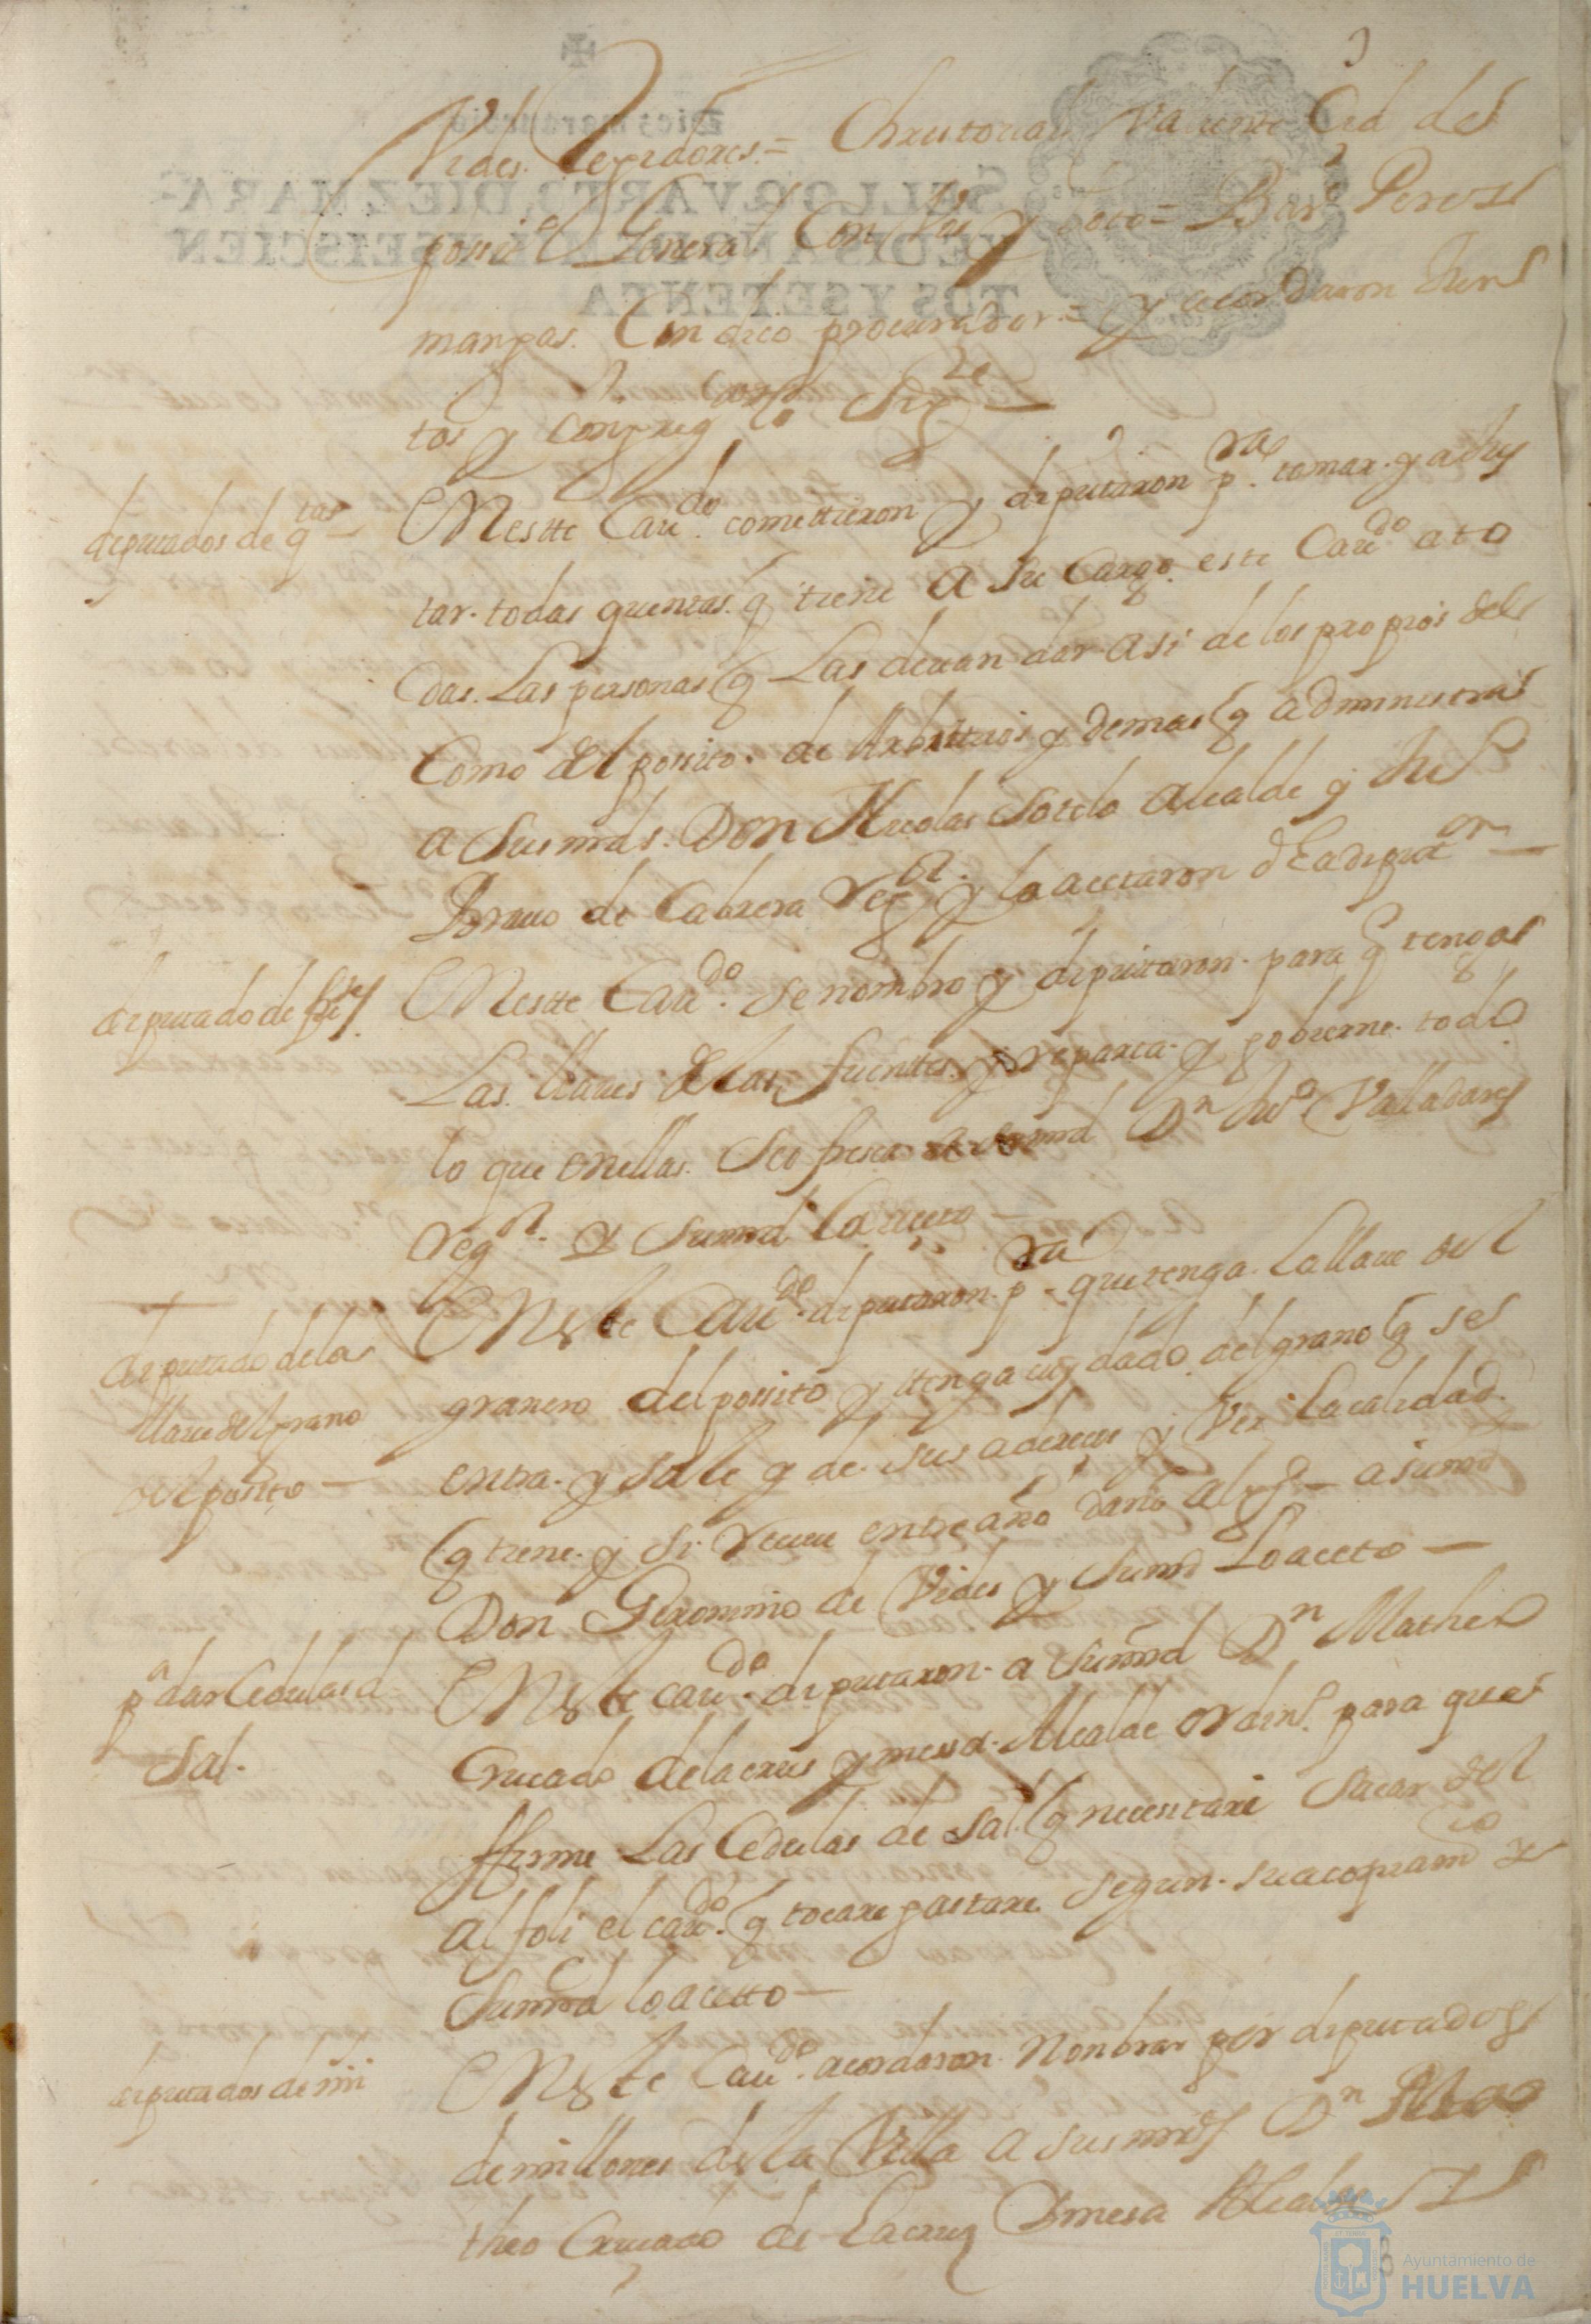 3
Vides Regidores = Christoual Valiente Cid del
possi.o General Con Vos y Voto = Bar.e Perez
marmas. Cindico procurador = y acordaron Jun
tos y congreg.dos lo sig.te
deputados de q.tas
En este Cau.do comettieron y diputaron p.ra tomar y adjus
tar todas quentas q tiene a su Cargo este Cau.do a to
das Las personas q Las deuan dar asi de los propios del
Como del possito de Arbitrios y demas q administra
a Sus mds. Don Nicolas Sotelo Alcalde y Ju.o
Brauo de Cabrera Reg.or y lo acetaron d La diputt.on
deputado de f.tes
En este Cau.do se nombro y diputaron para q tenga
Las llaues de las fuentes y reparta y gobierne todo
lo que en ellas Se ofresca a su md D.n Ju.o Valladares
Reg.or y su md lo aceto
deputado de la
llaue del grano
del posito
En este Cau.do diputaron p.ra que tenga La llaue del
granero del possito y tenga cuydado del grano q se
entra y sale y de sus aderecos y Ver La calidad
q tiene y si Reciue entre año daño alg.o a su md
Don Geronimo de Vides y su md Lo aceto
p.a dar Cedulas d
Sal.
En este cau.do diputaron a su md D.n Matheo
Cruçado de la crus y messa Alcalde ordin.o para que
ffirme Las Cedulas de Sal q necesitare Sacar del
alfoli el cau.do q tocare gastare segun su acopiam.to y
su md lo acetto
deputados de mi
En este Cau.do acordaron Nonbrar por diputados
de millones de la Villa a sus mds D.n Ma
theo Cruçado de La cruz y mesa Alcalde
Ayuntamiento de
HUELVA